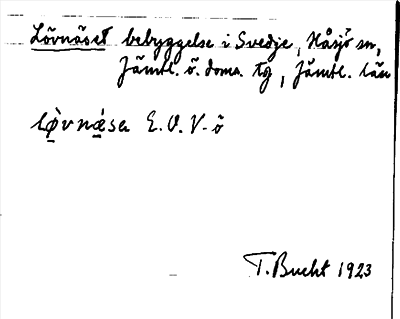 Lövnäset bebyggelse i Svedje, Håsjö sn,
Jämtl. ö. doms. tg, Jämtl. län
lø̀vnæ̀sa E. O. V-ö
T. Bucht 1923